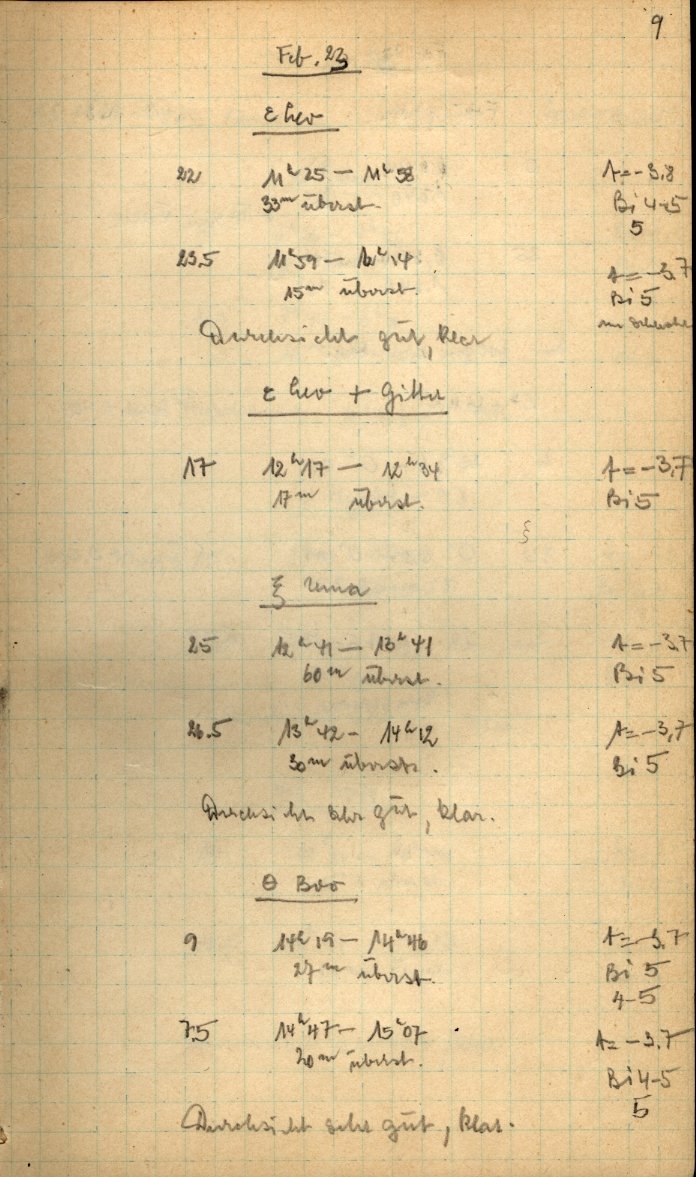 9
Feb. 23
ε Leo
22 11h25 — 11h58 A=-3,8
33m überst. Bi 4-5
5
23.5 11h59 — 12h14 A=-3,7
15m überst. Bi 5
Durchsicht gut, klar
ε Leo + Gitter
17 12h17 — 12h34 A=-3,7
17m überst. Bi 5
ξ
ξ Uma
25 12h41 — 13h41 A=-3,7
60m überst. Bi 5
26.5 13h42 - 14h12 A=-3,7
30m überst. Bi 5
Durchsicht sehr gut, klar.
θ Boo
9 14h19 — 14h46 A=-3.7
27m überst. Bi 5
4-5
7.5 14h47 — 15h07 A=-3.7
20m überst. Bi 4-5
5
Durchsicht sehr gut, klar.